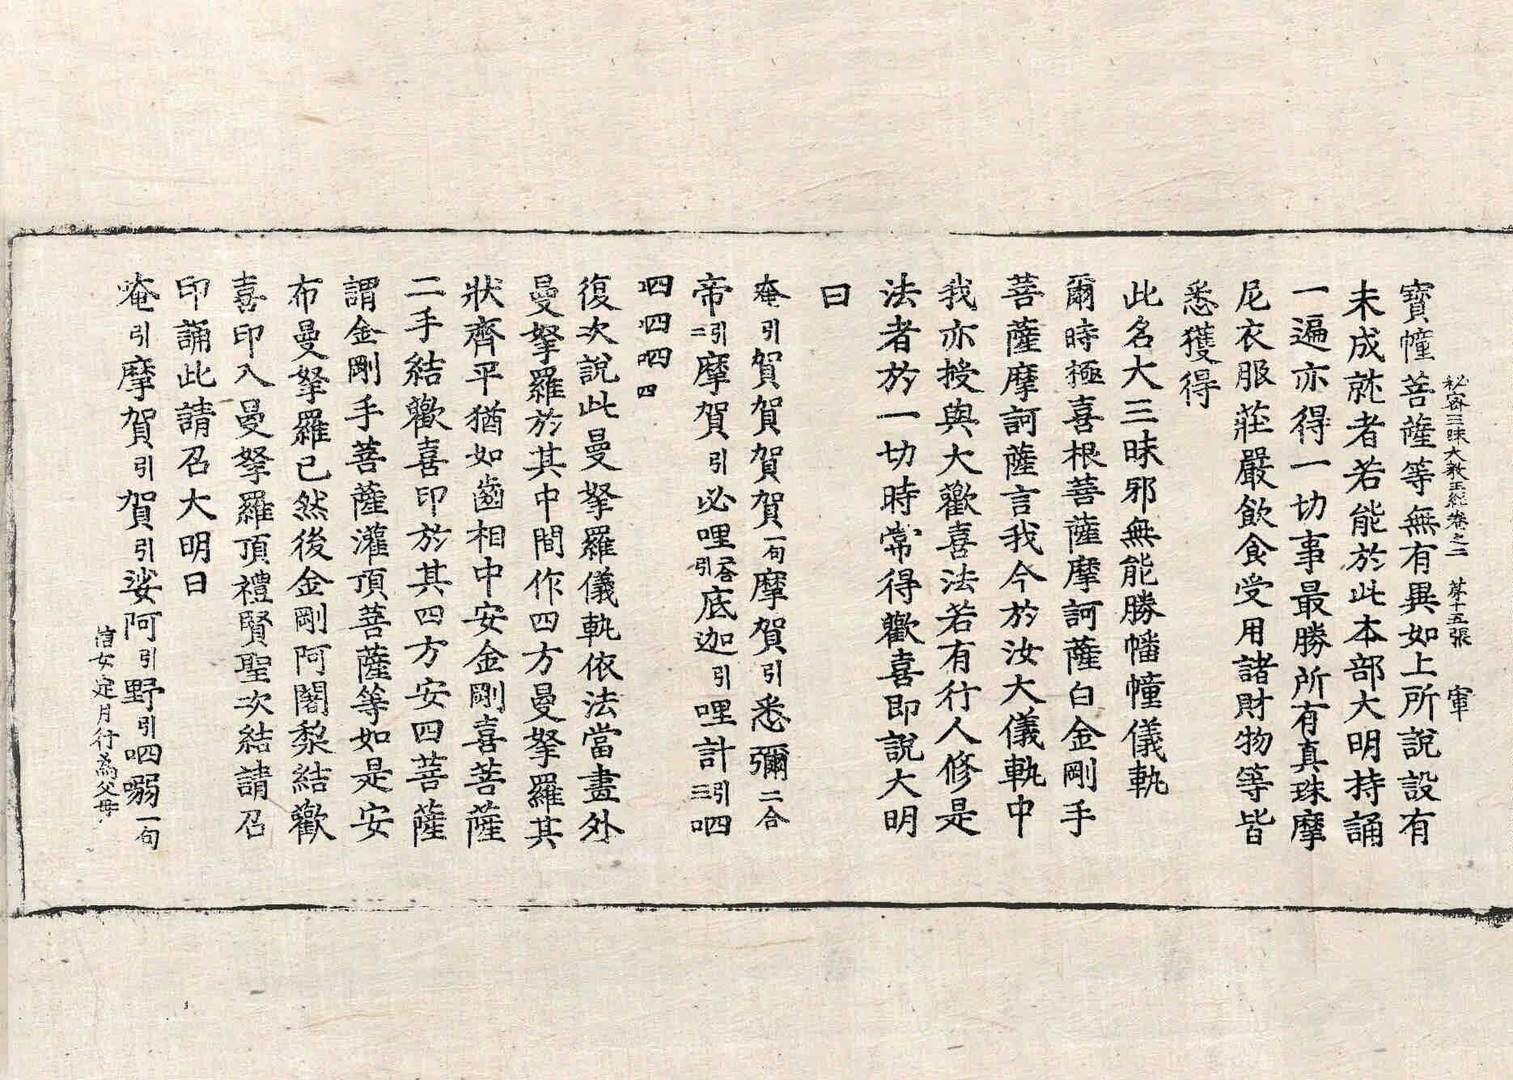 秘密三昧大教王經卷之二 苐十五張 軍
寶幢菩薩等無有異如上所說設有
未成就者若能於此本部大明持誦
一遍亦得一切事最勝所有真珠摩
尼衣服莊嚴飲食受用諸財物等皆
悉獲得
此名大三昧邪無能勝幡幢儀軌
爾時極喜根菩薩摩訶薩白金剛手
菩薩摩訶薩言我今於汝大儀軌中
我亦授與大歡喜法若有行人修是
法者於一切時常得歡喜即說大明
曰
唵引賀賀賀賀一句摩賀引悉彌二合
帝引二摩賀引必哩二合引底迦引哩計引三呬
呬呬呬四
復次說此曼拏羅儀軌依法當畫外
曼拏羅於其中間作四方曼拏羅其
狀齊平猶如齒相中安金剛喜菩薩
二手結歡喜印於其四方安四菩薩
謂金剛手菩薩灌頂菩薩等如是安
布曼拏羅已然後金剛阿闍梨結歡
喜印入曼拏羅頂禮賢聖次結請召
印誦此請召大明曰
唵引摩賀引賀引娑阿引野引呬嚩一句
信女定月行為父母